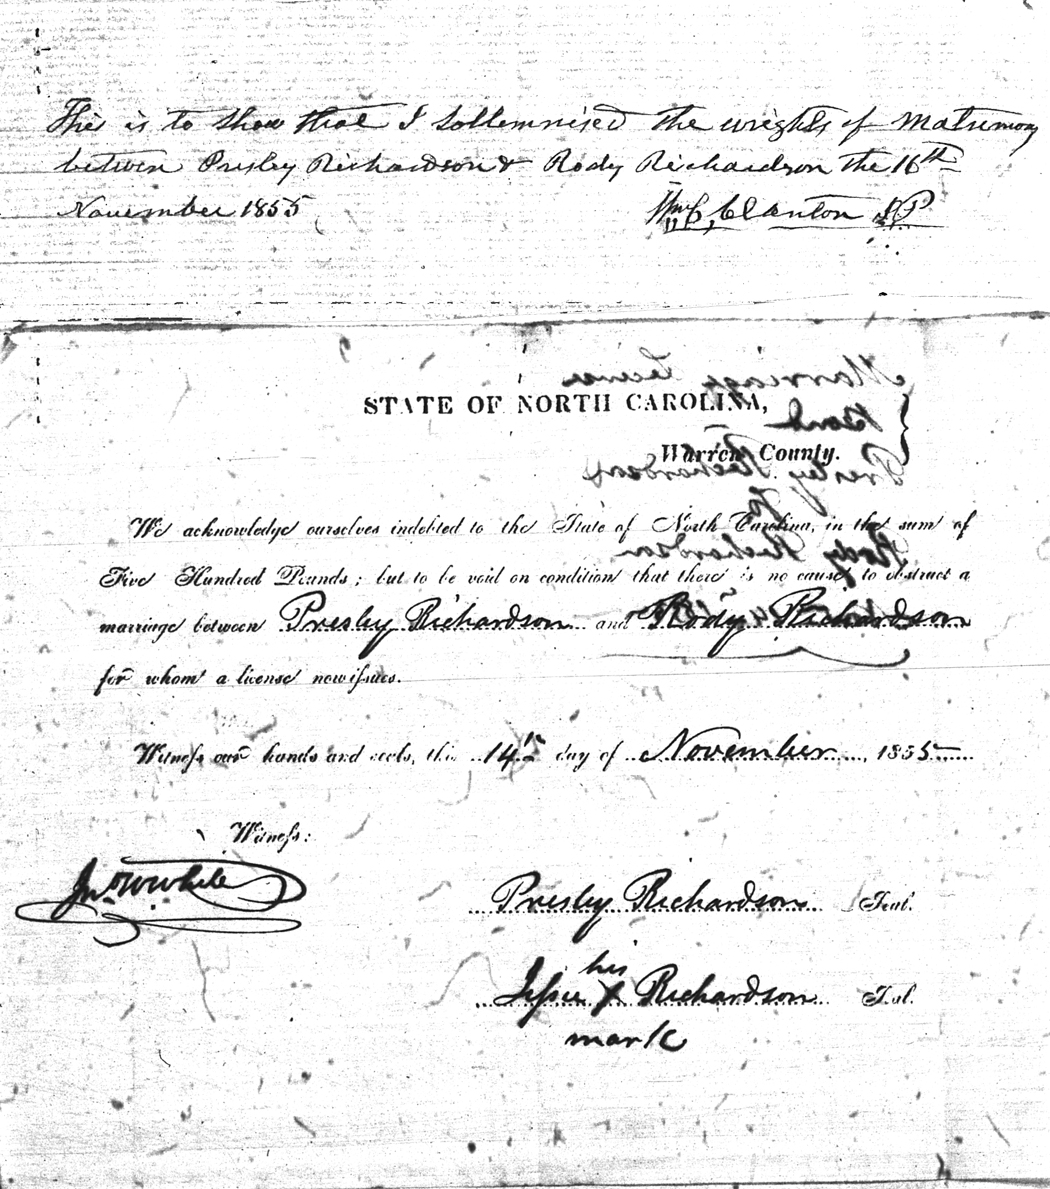 This is to show that I sollemnised the wrights of Matrimony
between Presley Richardson & Rody Richardson the 16th
November 1855
Wm C, Clanton JP
Marriage License
STATE OF NORTH CAROLINA,
Bond
Warren County.
Presley Richardson
to
We acknowledge ourselves indebted to the State of North Carolina, in the sum of
Rody Richardson
Five Hundred Pounds; but to be void on condition that there is no cause to obstruct a
marriage between Presley Richardson and Rody Richardson
for whom a license now issues.
Witness our hands and seals, this 14th day of November, 1855
Witness:
Jno. W. White
Presley Richardson Seal.
his
Jesse X Richardson Seal.
mark